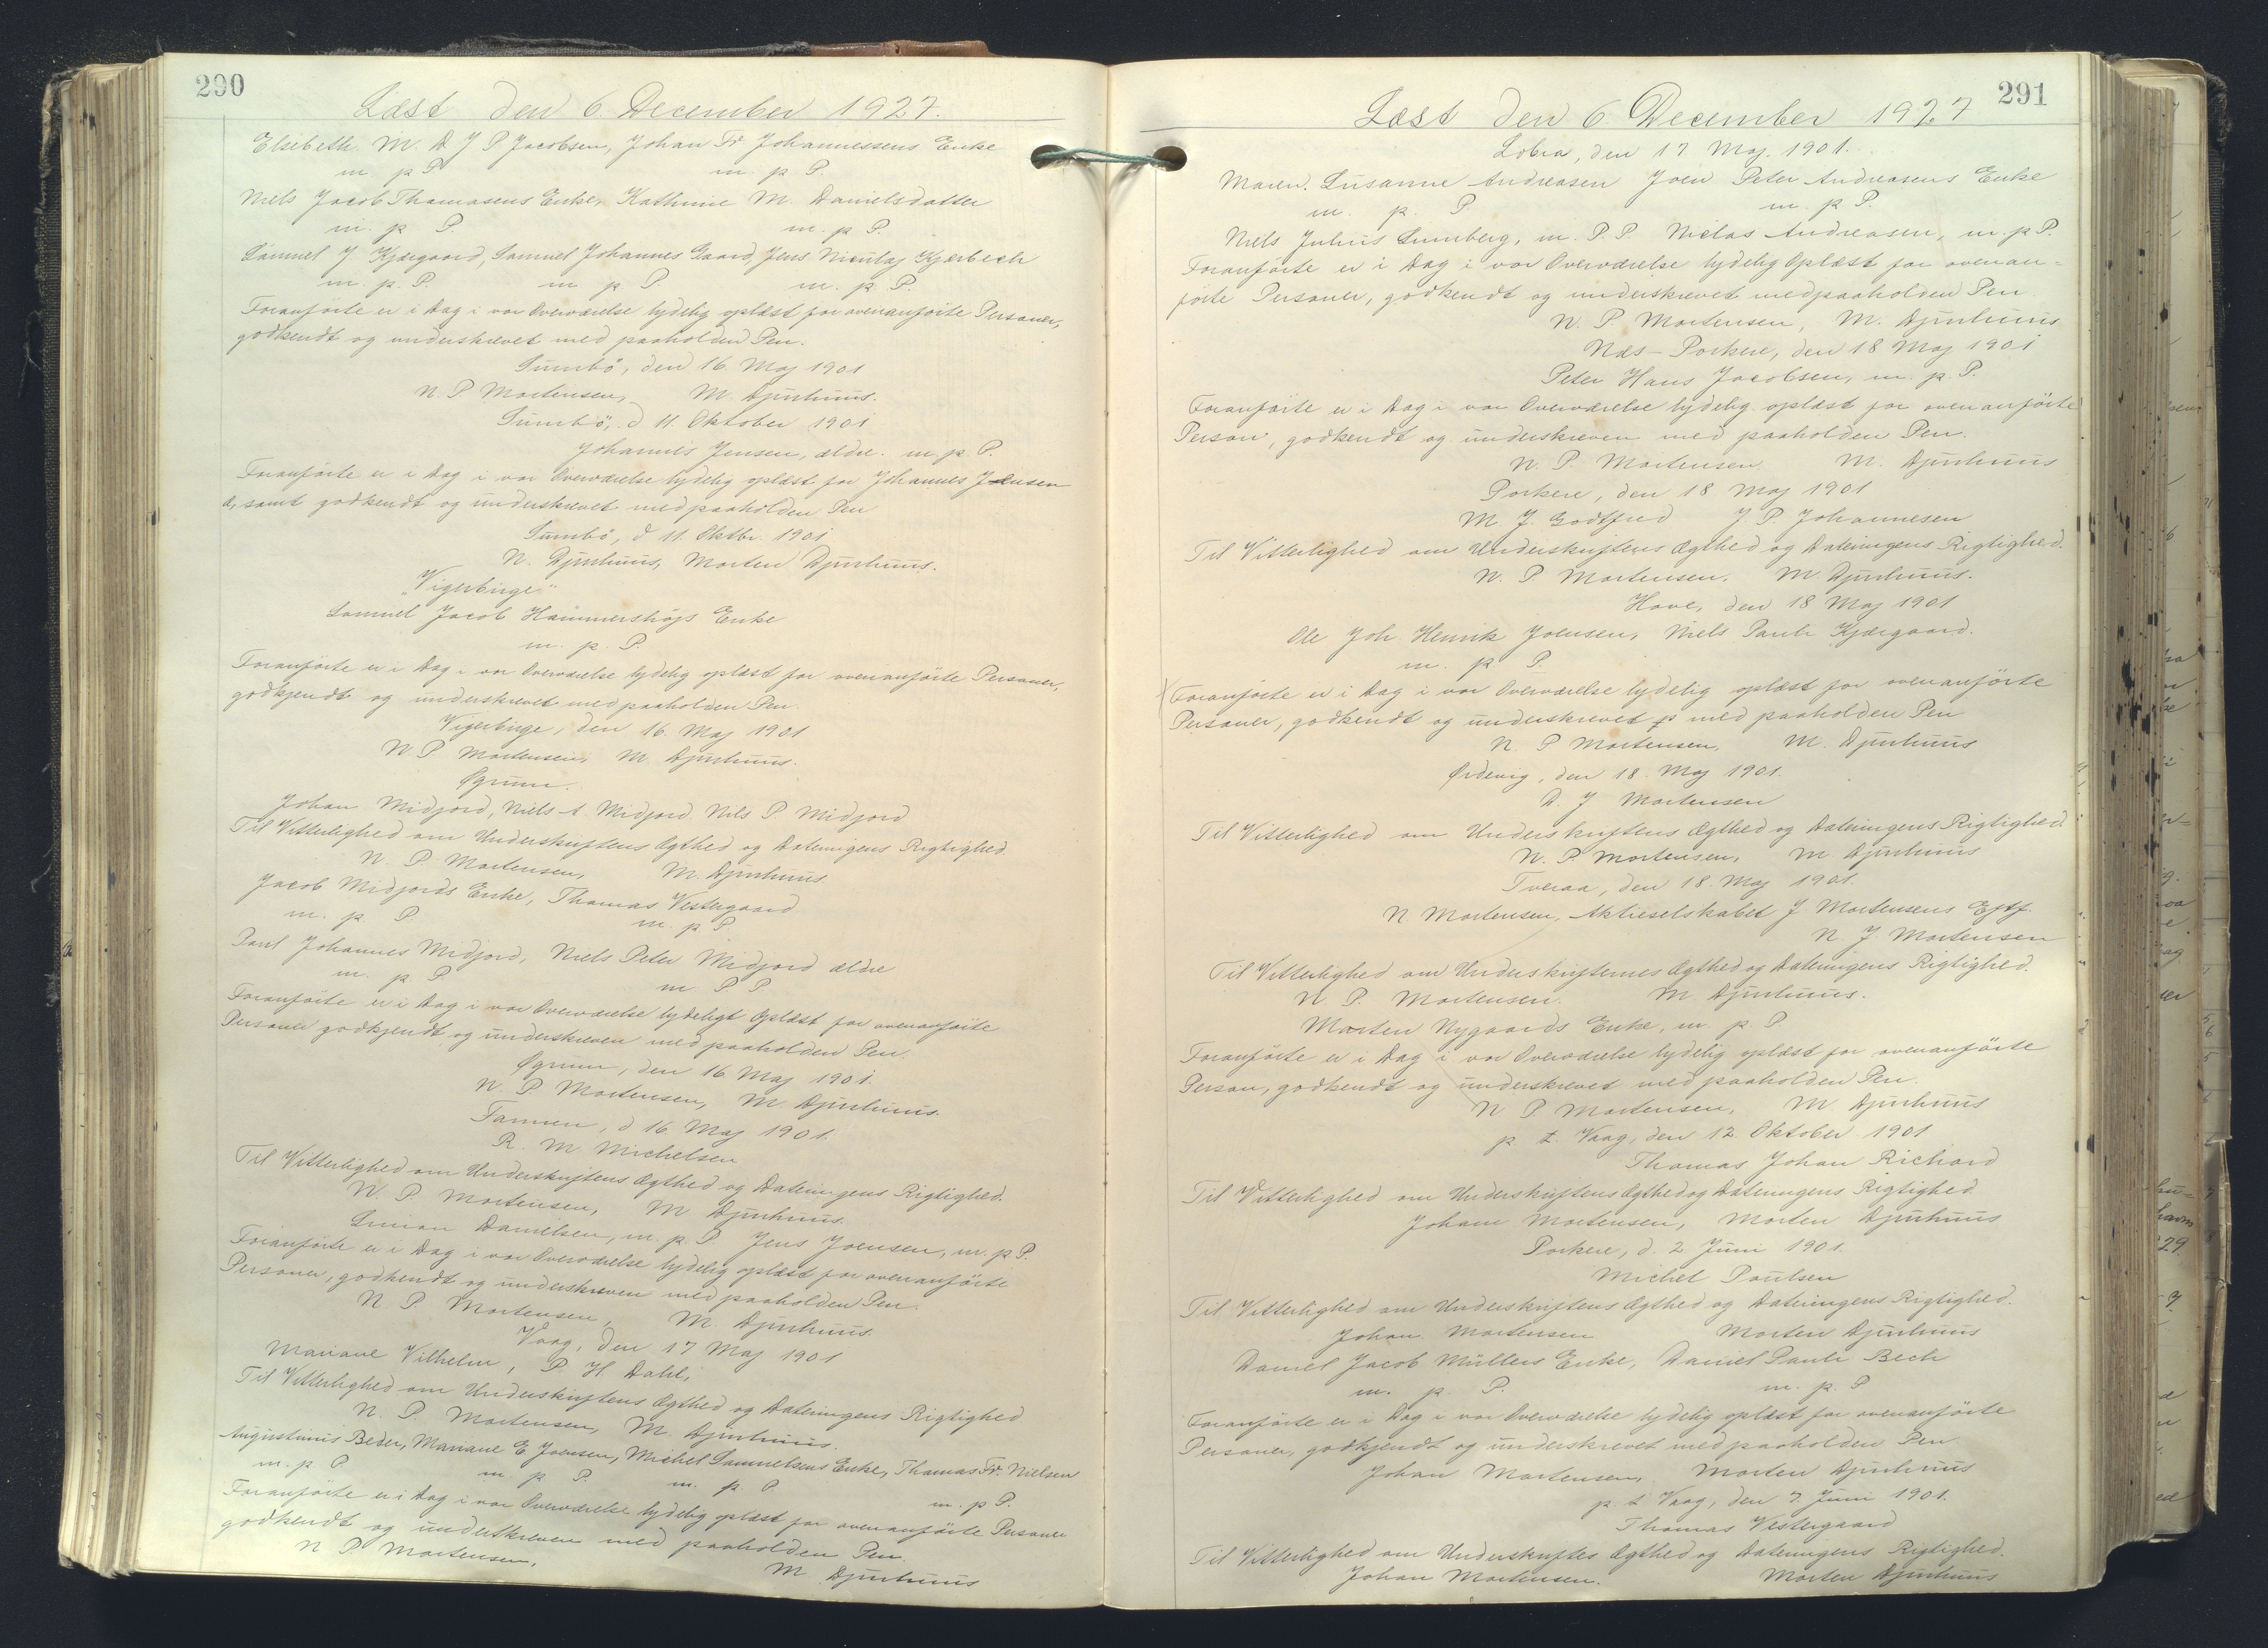 290
Læst den 6. December 1927.
Elsebeth M. D J P Jacobsen, Johan Fr. Johannessens Enke
m p P m. p P.
Niels Jacob Thomasens Enke, Kathrine M. Danielsdatter
m. p P. m. p P.
Samuel J Kjærgaard, Samuel Johannes Gaard, Jens Nicolaj Kjærbech
m. p. P. m p P. m. p P.
Foranførte er i Dag i vor Overværelse lydelig oplæst for ovenanførte Personer,
godkendt og underskrevet med paaholden Pen.
Sumbø, den 16. Maj 1901
N. P Mortensen, M. Djurhuus.
Sumbø, d 11. Oktober 1901
Johannes Jensen, ældre. m. p. P.
Foranførte er i Dag i vor Overværelse lydelig oplæst for Johannes Jensen
æ, samt godkendt og underskrevet med paaholden Pen
Sumbø, d 11. Oktbr. 1901
N. Djurhuus, Morten Djurhuus.
"Vigerbirge"
Samuel Jacob Hammershøjs Enke
m. p. P.
Foranførte er i Dag i vor Overværelse lydelig oplæst for ovenanførte Personer,
godkjendt og underskrevet med paaholden Pen.
Vigerbirge, den 16. Maj 1901
N P Mortensen, M Djurhuus.
Øgrum.
Johan Midjord, Niels A Midjord Nils P. Midjord
Til Vitterlighed om Underskriftens Ægthed og Dateringens Rigtighed.
N. P. Mortensen, M. Djurhuus.
Jacob Midjords Enke, Thomas Vestergaard
m. p P. m. p P
Poul Johannes Midjord, Niels Peter Midjord ældre
m. p P m. P P
Foranførte er i Dag i vor Overværelse lydeligt oplæst for ovenanførte
Personer godkjendt og underskreven med paaholden Pen.
Øgrum, den 16. Maj 1901.
N P. Mortensen, M. Djurhuus.
Famien, d 16. Maj 1901.
R. M Michelsen
Til Vitterlighed om Underskriftens Ægthed og Dateringens Rigtighed.
N. P. Mortensen, M. Djurhuus.
Simon Danielsen, m. p. P Jens Joensen, m. p P.
Foranførte er i Dag i vor Overværelse lydelig oplæst for ovenanførte
Personer, godkendt og underskreven med paaholden Pen.
N. P Mortensen, M. Djurhuus.
Vaag, den 17 Maj 1901
Mariane Vilhelm, P H Dahl,
Til Vitterlighed om Underskriftens Ægthed og Dateringens Rigtighed
N. P. Mortensen, M. Djurhuus.
Augustinus Beder, Mariane E. Joensen, Michel Samuelsens Enke, Thomas Fr. Nielsen
m. p. P. m. p P. m. p. P. m. p P.
Foranførte er i Dag i vor Overværelse lydelig oplæst for ovenanførte Personer
godkendt og underskreven med paaholden Pen.
N P. Mortensen, M Djurhuus
291
Læst den 6. December 1927
Lobra, den 17 Maj. 1901.
Maren. Susanne Andreasen Joen Peter Andreasens Enke
m. p. P. m. p P.
Niels Julius Lumberg, m. P. P. Niclas Andreasen, m. p P.
Foranførte er i Dag i vor Overværelse lydelig oplæst for ovenan=
førte Personer, godkendt og underskrevet med paaholden Pen
N. P. Mortensen, M. Djurhuus
Næs - Porkere, den 18 Maj 1901
Peter Hans Jacobsen, m. p. P.
Foranførte er i Dag i vor Overværelse lydelig oplæst for ovenanførte
Person, godkendt og underskreven med paaholden Pen.
N. P. Mortensen M. Djurhuus
Porkere, den 18 Maj 1901
M. J. Godtfred J P. Johannesen
Til Vitterlighed om Underskriftens Ægthed og Dateringens Rigtighed.
N. P. Mortensen. M. Djurhuus.
Hove, den 18 Maj 1901
Ole Joh. Henrik Joensen, Niels Pauli Kjærgaard.
m. p P.
Foranførte er i Dag i vor Overværelse lydelig oplæst for ovenanførte
Personer, godkendt og underskrevet p med paaholden Pen
N. P Mortensen, M. Djurhuus
Ørdevig, den 18. Maj 1901.
D. J Mortensen
Til Vitterlighed om Underskriftens Ægthed og Dateringens Rigtighed
N. P. Mortensen, M Djurhuus
Tveraa, den 18. Maj 1901.
N Mortensen, Aktieselskabet J. Mortensens Eftf.
N. J. Mortensen
Til Vitterlighed om Underskrifternes Ægthed og Dateringens Rigtighed.
N. P. Mortensen. M. Djurhuus.
Morten Nygaards Enke, m. p. P
Foranførte er i Dag i vor Overværelse lydelig oplæst for ovenanførte
Person, godkendt og underskrevet med paaholden Pen.
N P Mortensen, M Djurhuus
p. t. Vaag, den 12. Oktober 1901
Thomas Johan Richard
Til Vitterlighed om Underskriftens Ægthed og Dateringens Rigtighed.
Johan Mortensen, Morten Djurhuus
Porkere, d. 2 Juni 1901.
Michel Poulsen
Til Vitterlighed om Underskriftens Ægthed og Dateringens Rigtighed.
Johan Mortensen Morten Djurhuus
Daniel Jacob Müllers Enke, Daniel Pauli Bech
m. p. P. m. p. P
Foranførte er i Dag i vor Overværelse lydelig oplæst for ovenanførte
Personer, godkjendt og underskrevet med paaholden Pen
Johan Mortensen, Morten Djurhuus
p. t Vaag, den 7. Juni 1901.
Thomas Vestergaard
Til Vitterlighed om Underskriftes Ægthed og Dateringens Rigtighed.
Johan Mortensen. Morten Djurhuus